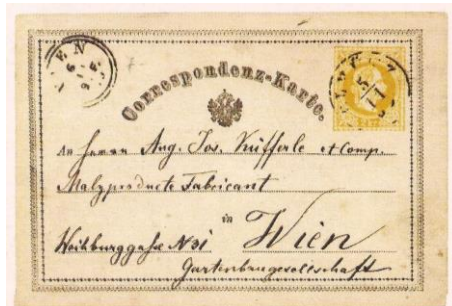 WIEN
Correspondenz-Karte.
An Herrn Aug. Jos. Küfferle et Comp.
Malzproducte Fabricant
in
Weihburggasse N 31 Wien
Gartenbaugesellschaft